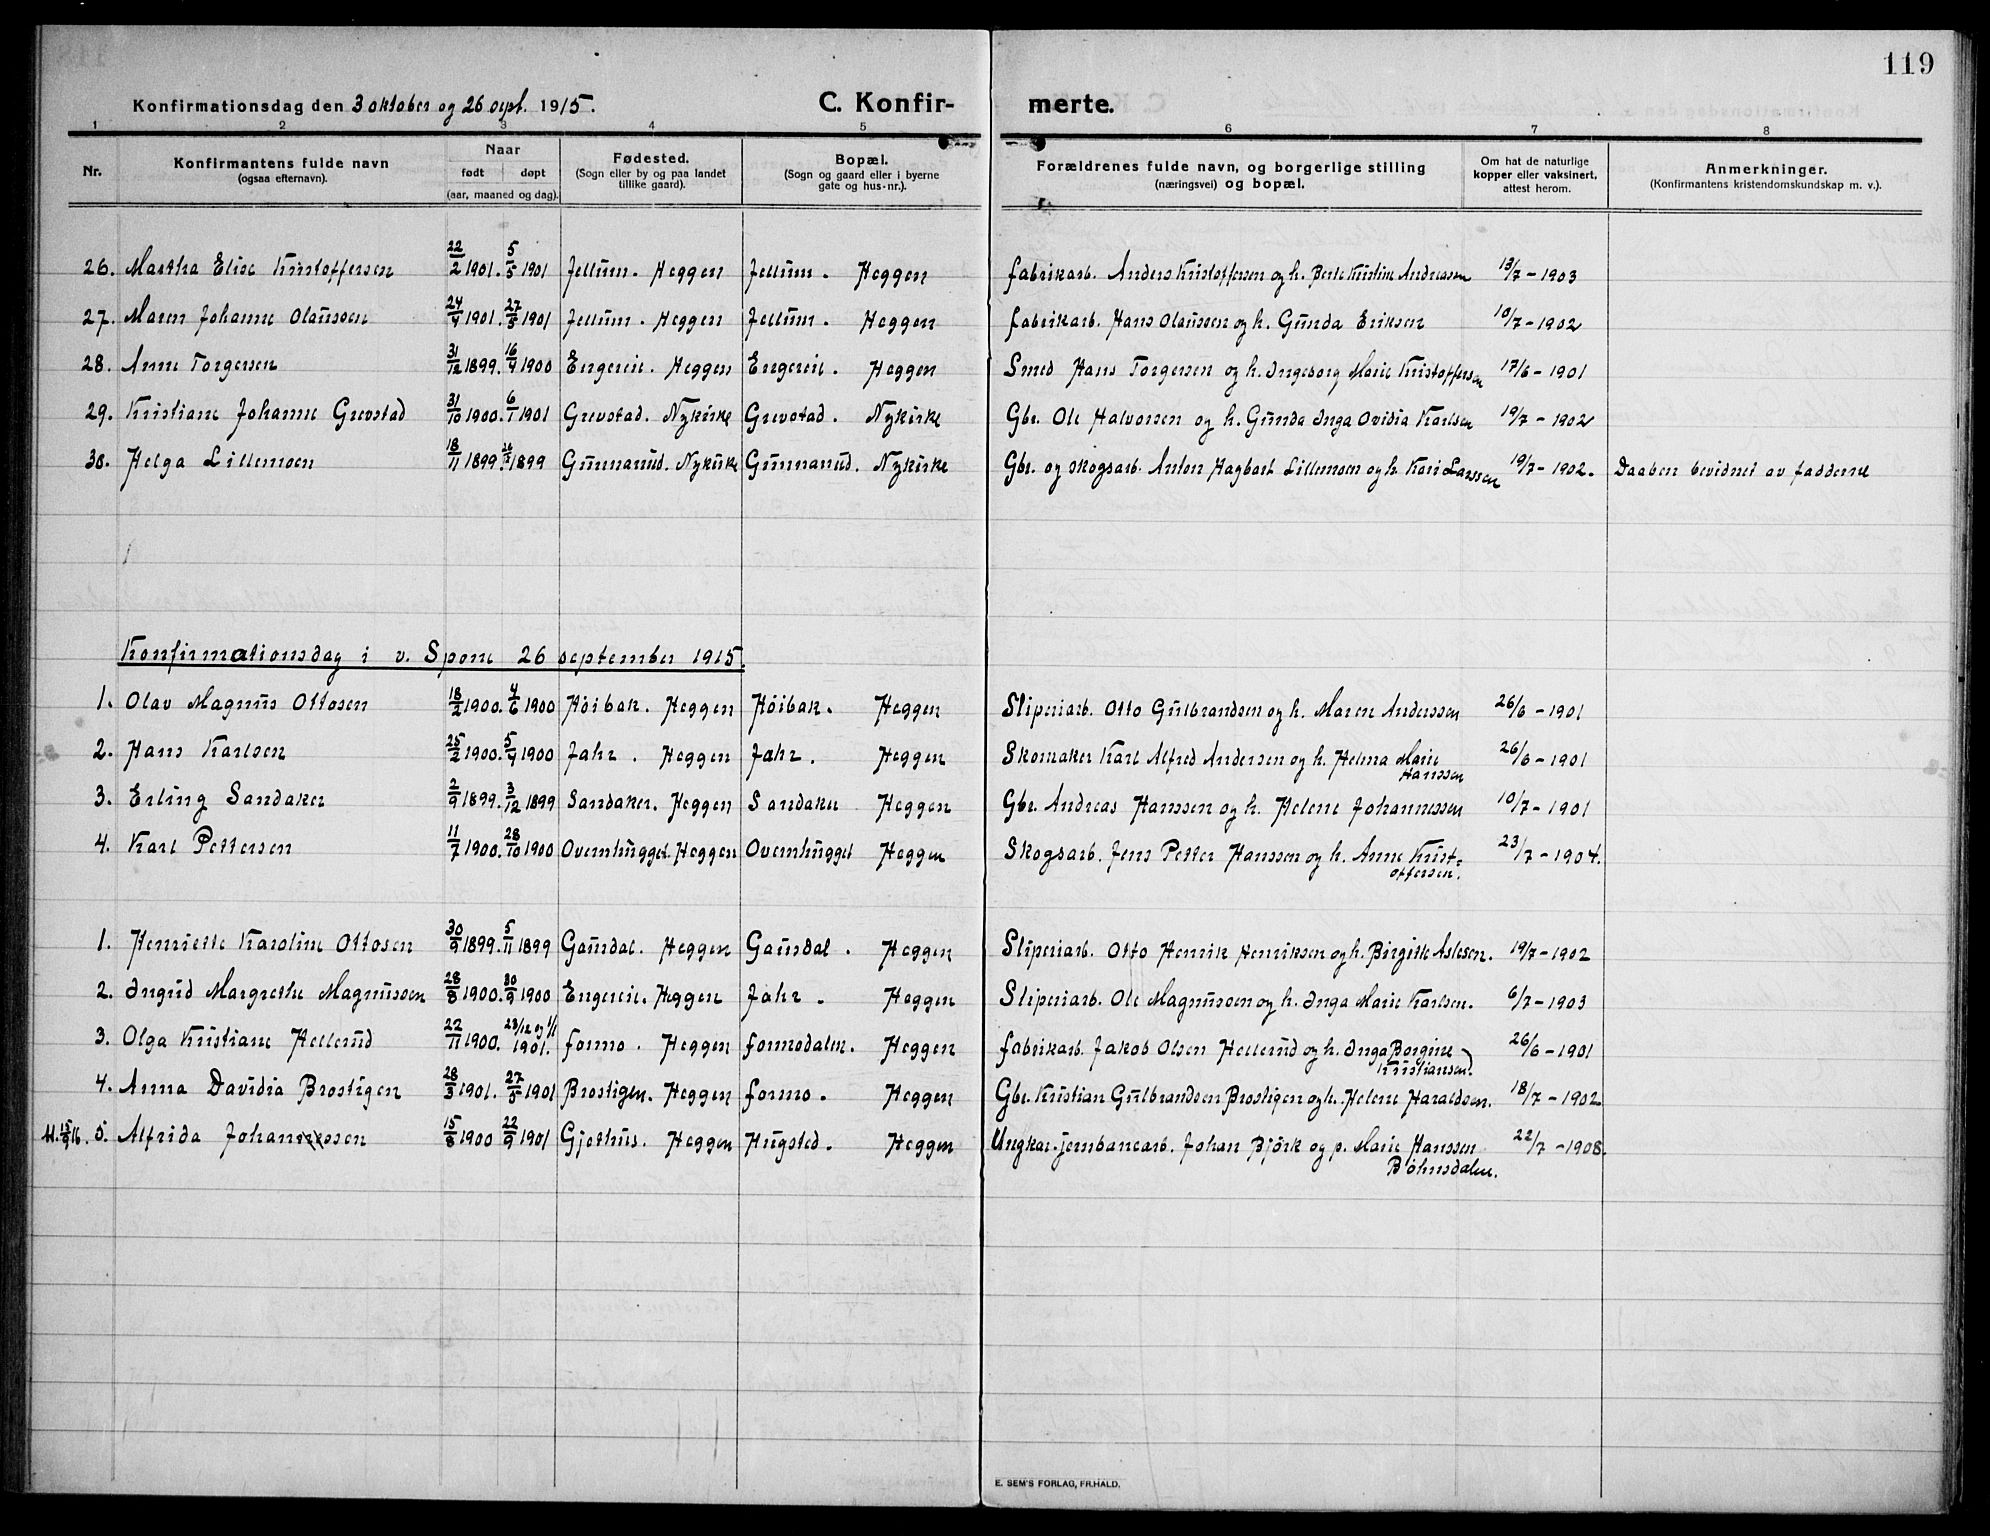 119
Konfirmationsdag den 3 oktober og 26 sept. 1915. C. Konfir- merte.
1 2 3 4 5 6 7 8
Nr. Konfirmantens fulde navn (ogsaa efternavn). Naar født døpt (aar, maaned og dag). Fødested. (Sogn eller by og paa landet tillike gaard). Bopæl. (Sogn og gaard eller i byerne gate og hus-nr.). Forældrenes fulde navn, og borgerlige stilling (næringsvei) og bopæl. Om hat de naturlige kopper eller vaksinert, attest herom. Anmerkninger. (Konfirmantens kristendomskundskap m. v.).
26. Martha Elise Kristoffersen 22/2 1901. 5/5 1901 Jellum. Heggen Jellum. Heggen Fabrikarb. Anders Kristoffersen og h. Berte Kristine Andreassen 13/7 - 1903
27. Maren Johanne Olaussen 24/4 1901. 27/5 1901 Jellum. Heggen Jellum. Heggen Fabrikarb. Hans Olaussen og h. Gunda Eriksen 10/7 - 1902
28. Anne Torgersen 31/12 1899. 16/4 1900 Engereie. Heggen Engereie. Heggen Smed Hans Torgersen og h. Ingeborg Marie Kristoffersen 17/6 - 1901
29. Kristiane Johanne Grevstad 31/10 1900. 6/1 1901 Grevstad. Nykirke Grevstad. Nykirke Gbr. Ole Halvorsen og h. Gunda Inga Ovidia Karlsen 19/7 - 1902
30. Helga Lillemoen 18/11 1899. 1899 Gunnarud. Nykirke Gunnarud. Nykirke Gbr. og skogsarb. Anton Hagbart Lillemoen og h. Kari Larssen 19/7 - 1902. Daaben bevidnet av fadderne
Konfirmationsdag i v. Spone 26 september 1915.
1. Olav Magnus Ottosen 18/2 1900. 4/6 1900 Høibak. Heggen Høibak. Heggen Sliperiarb. Otto Gulbrandsen og h. Maren Anderssen 26/6 - 1901
2. Hans Karlsen 25/2 1900. 5/4 1900 Jahr. Heggen Jahr. Heggen Skomaker Karl Alfred Andersen og h. Helma Marie Hanssen 26/6 - 1901
3. Erling Sandaker 2/9 1899. 3/12 1899 Sandaker. Heggen Sandaker Heggen Gbr. Andreas Hanssen og h. Helene Johannessen 10/7 - 1901
4. Karl Pettersen 11/7 1900. 28/10 1900 Overnhugget. Heggen Overnhugget Heggen Skogsarb. Jens Petter Hanssen og h. Anne Krist-
offersen. 23/7 - 1904.
1. Henriette Karoline Ottosen 30/9 1899. 5/11 1899 Gaundal. Heggen Gaundal. Heggen Sliperiarb. Otto Henrik Henriksen og h. Birgitte Aslesen. 19/7 - 1902
2. Ingrid Margrethe Magnussen 28/8 1900. 30/9 1900 Engereie. Heggen Jahr. Heggen Sliperiarb. Ole Magnussen og h. Inga Marie Karlsen. 6/7 - 1903
3. Olga Kristiane Hellerud 22/11 1900. 23/12 og 1/1 1901. Formo. Heggen Formodalen. Heggen Fabrikarb. Jakob Olsen Hellerud og h. Inga Borgine
Kristiansen. 26/6 - 1901
4. Anna Davidia Brostigen 28/3 1901. 27/5 1901 Brostigen. Heggen Formo. Heggen Gbr. Kristian Gulbrandsen Brostigen og h. Helene Haraldsen. 18/7 - 1902
5. Alfrida Johanssen 15/8 1900 22/9 1901 Gjethus. Heggen Hugsted. Heggen Ungkar-jernbanearb. Johan Björk og p. Marie Hanssen
Bøhnsdalen. 22/7 - 1908.
E. SEM'S FORLAG, FR.HALD.